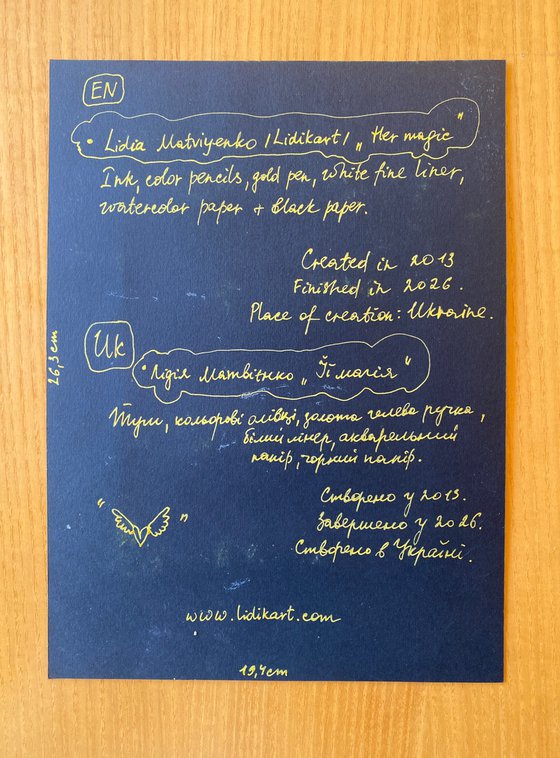 EN
• Lidia Matviyenko /Lidikart/ „Her magic"
Ink, color pencils, gold pen, white fine liner,
watercolor paper + black paper.
Created in 2013
Finished in 2026.
Place of creation: Ukraine.
26,3cm
Uk
• Лідія Матвієнко „Її магія"
Туш, кольорові олівці, золота гелева ручка,
білий лінер, акварельний
папір, чорний папір.
Створено у 2013.
Завершено у 2026.
Створено в Україні.
" "
www.lidikart.com
19,4cm